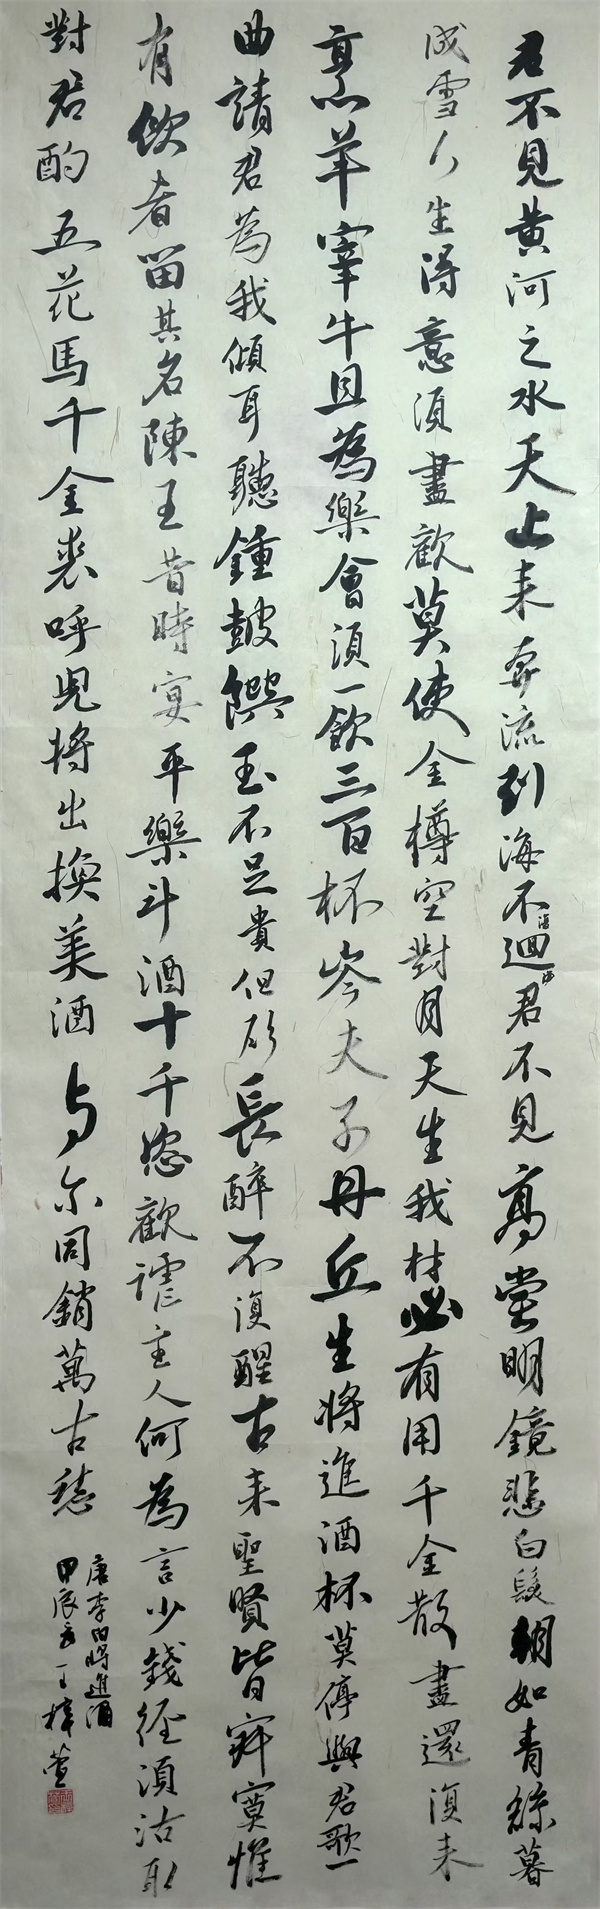 君不見黄河之水天上来奔流到海不迴君不見高堂明鏡悲白髮朝如青絲暮
成雪人生得意須盡歡莫使金樽空對月天生我材必有用千金散盡還復来
烹羊宰牛且為樂會須一飲三百杯岑夫子丹丘生將進酒杯莫停與君歌一
曲請君為我傾耳聽鍾鼓饌玉不足貴但願長醉不復醒古来聖賢皆寂寞惟
有飲者留其名陳王昔時宴平樂斗酒十千恣歡謔主人何為言少錢徑須沽取
對君酌五花馬千金裘呼兒將出換美酒与尔同銷萬古愁
唐李白將進酒
甲辰冬丁梓萱